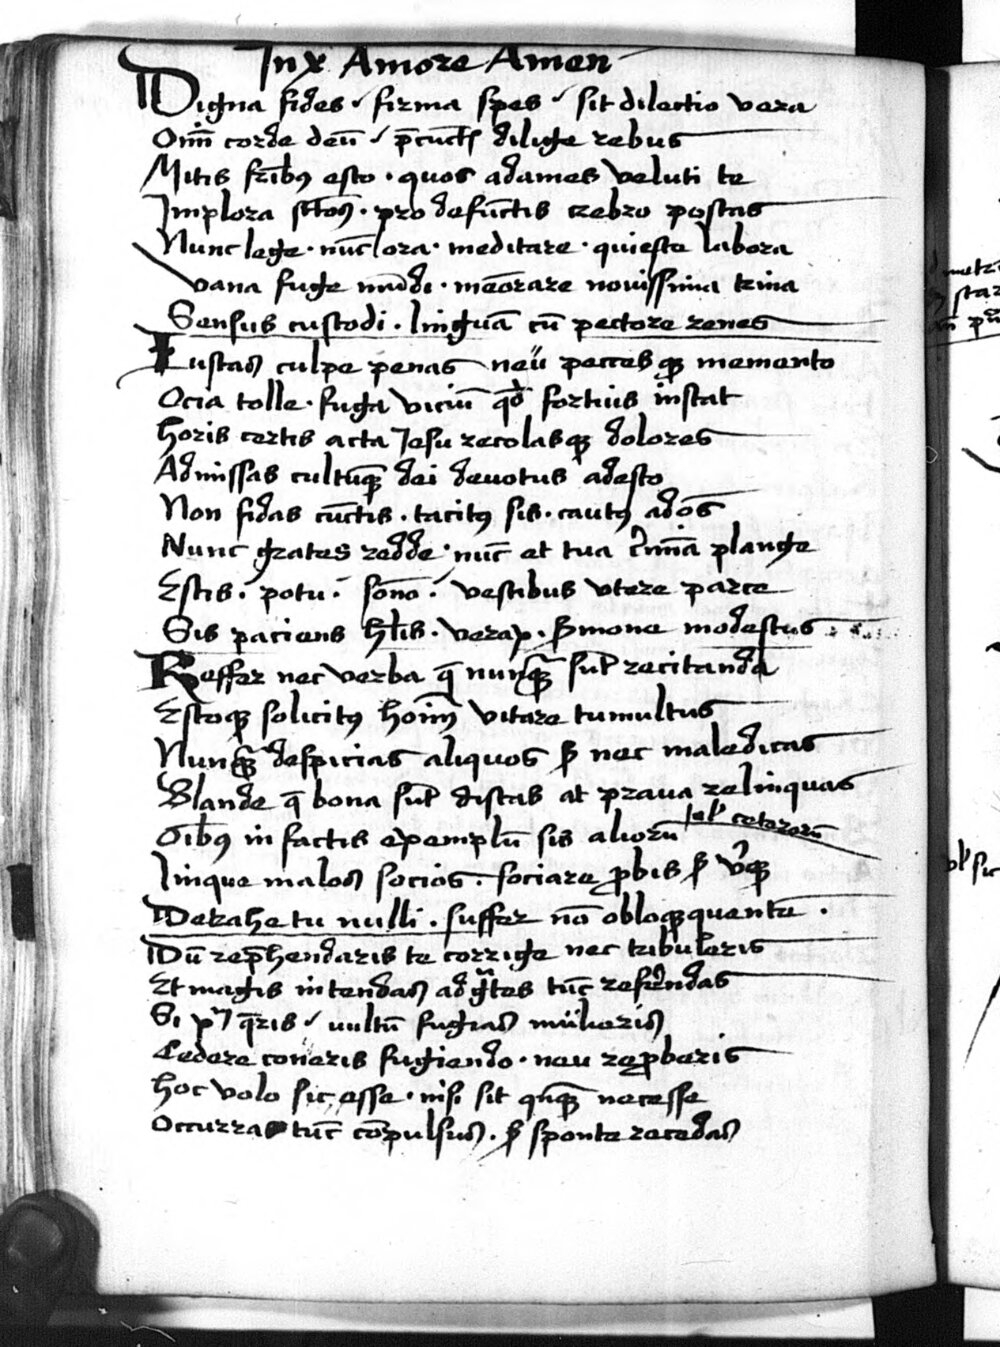 In x̄ Amore Amen
Digna fides / firma spes / sit dilectio vera
Om̄i corde deū / p̄cunctis dilige rebus
Mitis fr̄ibꝯ esto . quos adames veluti te
Implora sctos . pro defunctis crebro postas
Nunc lege . nūc ora . meditare . quiesce labora
vana fuge mūdi . memorare novissima trina
Sensus custodi . linguā cū pectore renes
Iustas culpe penas neu pecces qꝫ memento
Ocia tolle . fuga viciū qd fortius instat
horis certis acta Jesu recolasqꝫ dolores
Admissas cultūqꝫ dei devotus adesto
Non fidas cūctis . tacitꝯ sis . cautꝯ ad os
Nunc grates redde . nūc et tua crimīa plange
Estis . potu . sōno . vestibus utere parce
Sis paciens hūlis . verax . sermone modestus
Reffer nec verba q̄ nunqꝫ sunt recitanda
Estoqꝫ solicitꝯ hoīm vitare tumultus
Nunqꝫ despicias aliquos sed nec maledicas
Blande q̄ bona sunt discas at praua relinquas
Oībꝯ in factis exemplū sis aliorū
vel ceterorū
linque malos socios . sociare ꝓbis sed vbiqꝫ
Detrahe tu nulli . suffer nō obloqꝫquentē .
Dū rep̄hendaris te corrige nec tribuleris
Et magis intendas ad gētes tūc referendas
Si queris / vultū fugias mulieris
Cedere coneris fugiendo . neu reꝓberis
hoc volo sic esse . nisi sit qnqꝫ necesse
Occurras tūc cōpulsus . sed sponte recedas